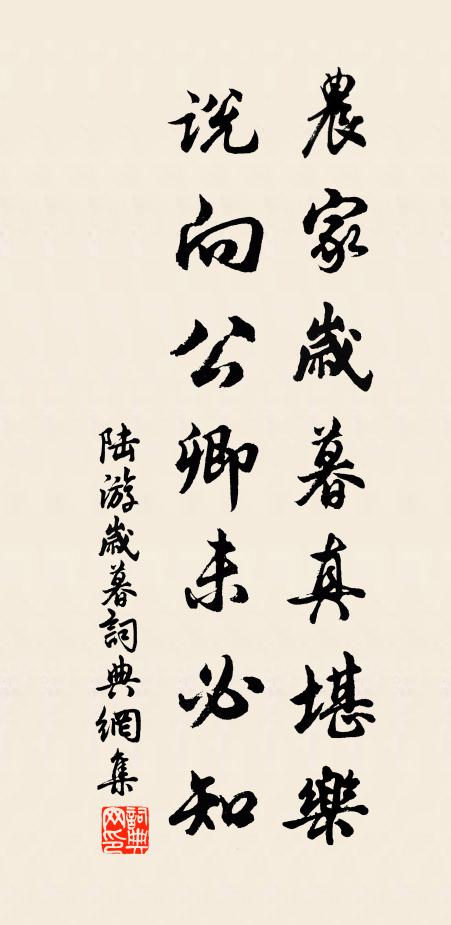 農家歲暮真堪樂
說向公卿未必知
陸游歲暮詞典網集
詞典网印